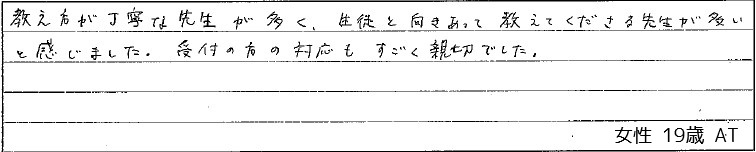 教え方が丁寧な先生が多く、生徒と向きあって教えてくださる先生が多い
と感じました。受付の方の対応もすごく親切でした。
女性 19歳 AT